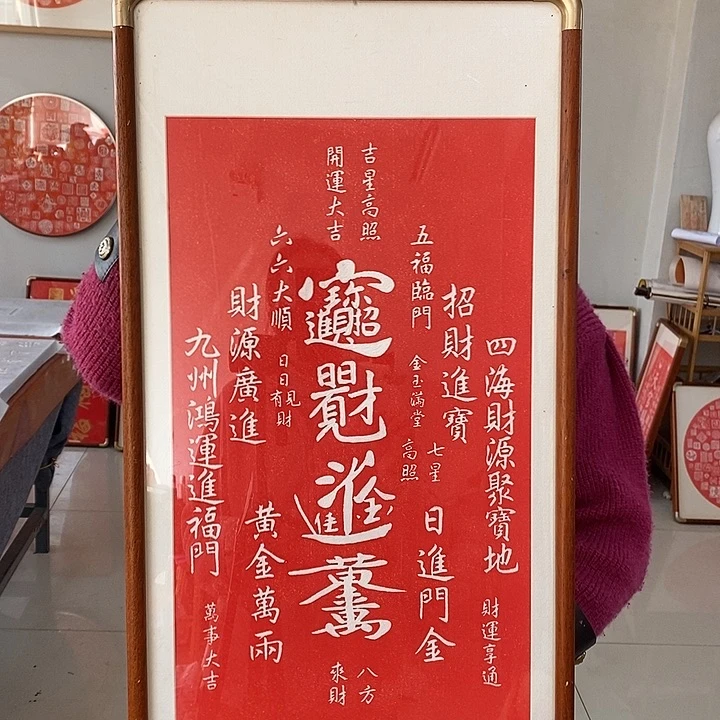 四海財源聚寶地
財運享通
招財進寶
日進門金
七星
高照
五福臨門
金玉滿堂
吉星高照
開運大吉
八方
來財
六六大順
日日有見財
財源廣進
黃金萬兩
九州鴻運進福門
萬事大吉